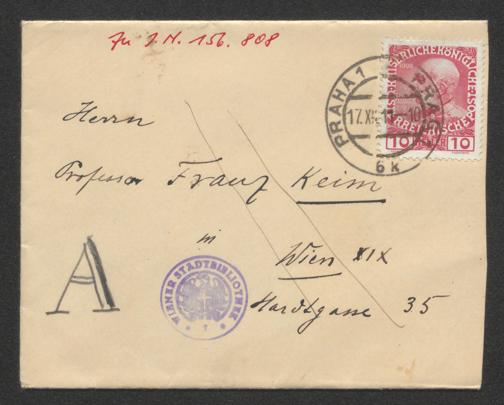 Zu I.N. 156.808
KAISERLICHE KÖNIGLICHE
ÖSTERREICHISCHE POST
10 HELLER 10
PRAHA 1 PRAG
17.XII.11-10
6k
Herrn
Professor Franz Keim
in
Wien XIX
Hardtgasse 35
A
WIENER STADTBIBLIOTHEK